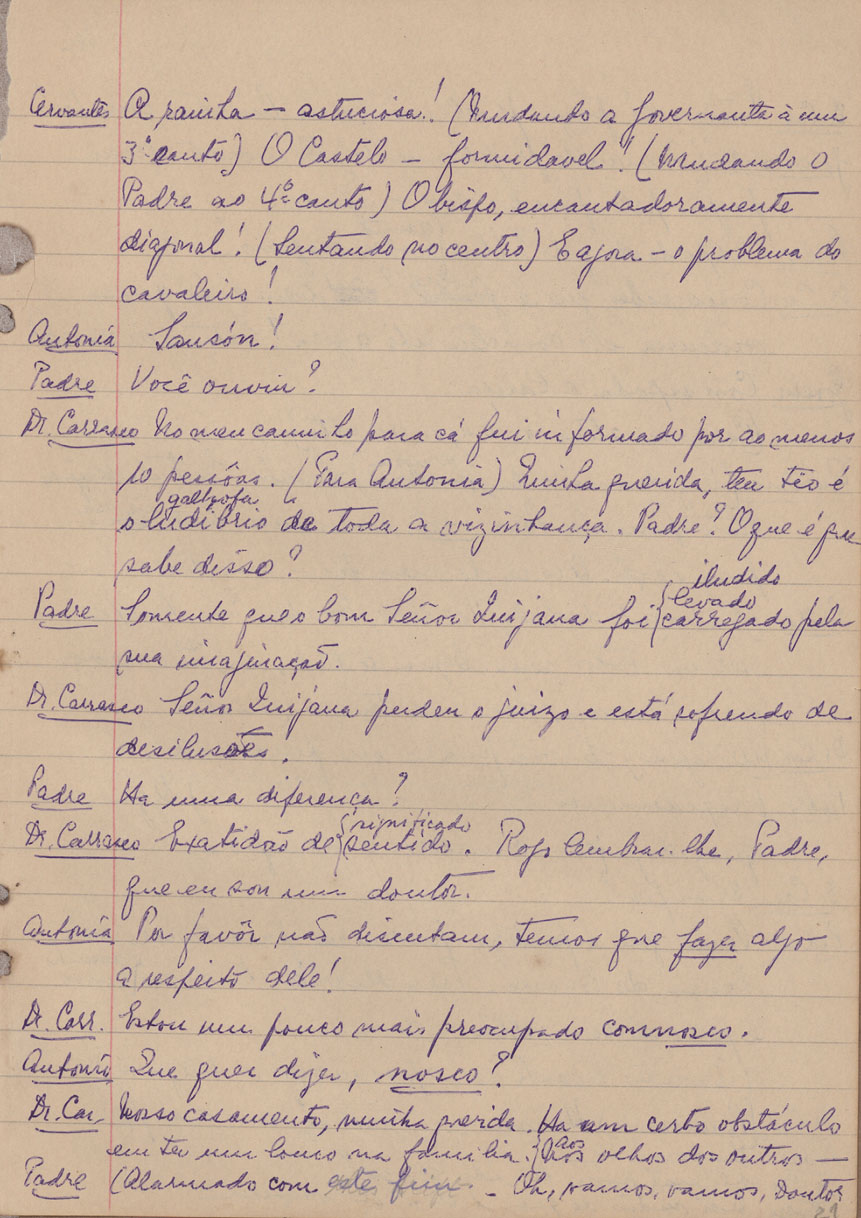 Cervantes A rainha – astuciosa! (Mudando a governanta à um
3º canto) O Castelo – formidavel! (Mudando o
Padre ao 4º canto) O bispo, encantadoramente
diagonal! (Sentando no centro) E agora – o problema do
cavaleiro!
Antonia Sansón!
Padre Você ouviu?
Dr. Carrasco No meu caminho para cá fui informado por ao menos
10 pessôas. (Para Antonia) Minha querida, teu tio é
galhofa
o ludibrio de toda a vizinhança. Padre? O que é que
sabe disso?
iludido
levado
Padre Somente que o bom Señor Quijana foi carregado pela
sua imaginação.
Dr. Carrasco Señor Quijana perdeu o juizo e está sofrendo de
desilusões.
Padre Ha uma diferença?
significado
Dr. Carrasco Exatidão de sentido. Rogo lembrar-lhe, Padre,
que eu sou um doutor.
Antonia Por favôr não discutam, temos que fazer algo
a respeito dele!
Dr. Carr. Estou um pouco mais preocupado connosco.
Antonia Que quer dizer, nosco?
Dr. Car. Nosso casamento, minha querida. Ha um certo obstáculo
aos
em ter um louco na familia. Nos olhos dos outros —
Padre (Alarmado com este – Oh, vamos, vamos, Doutor
21